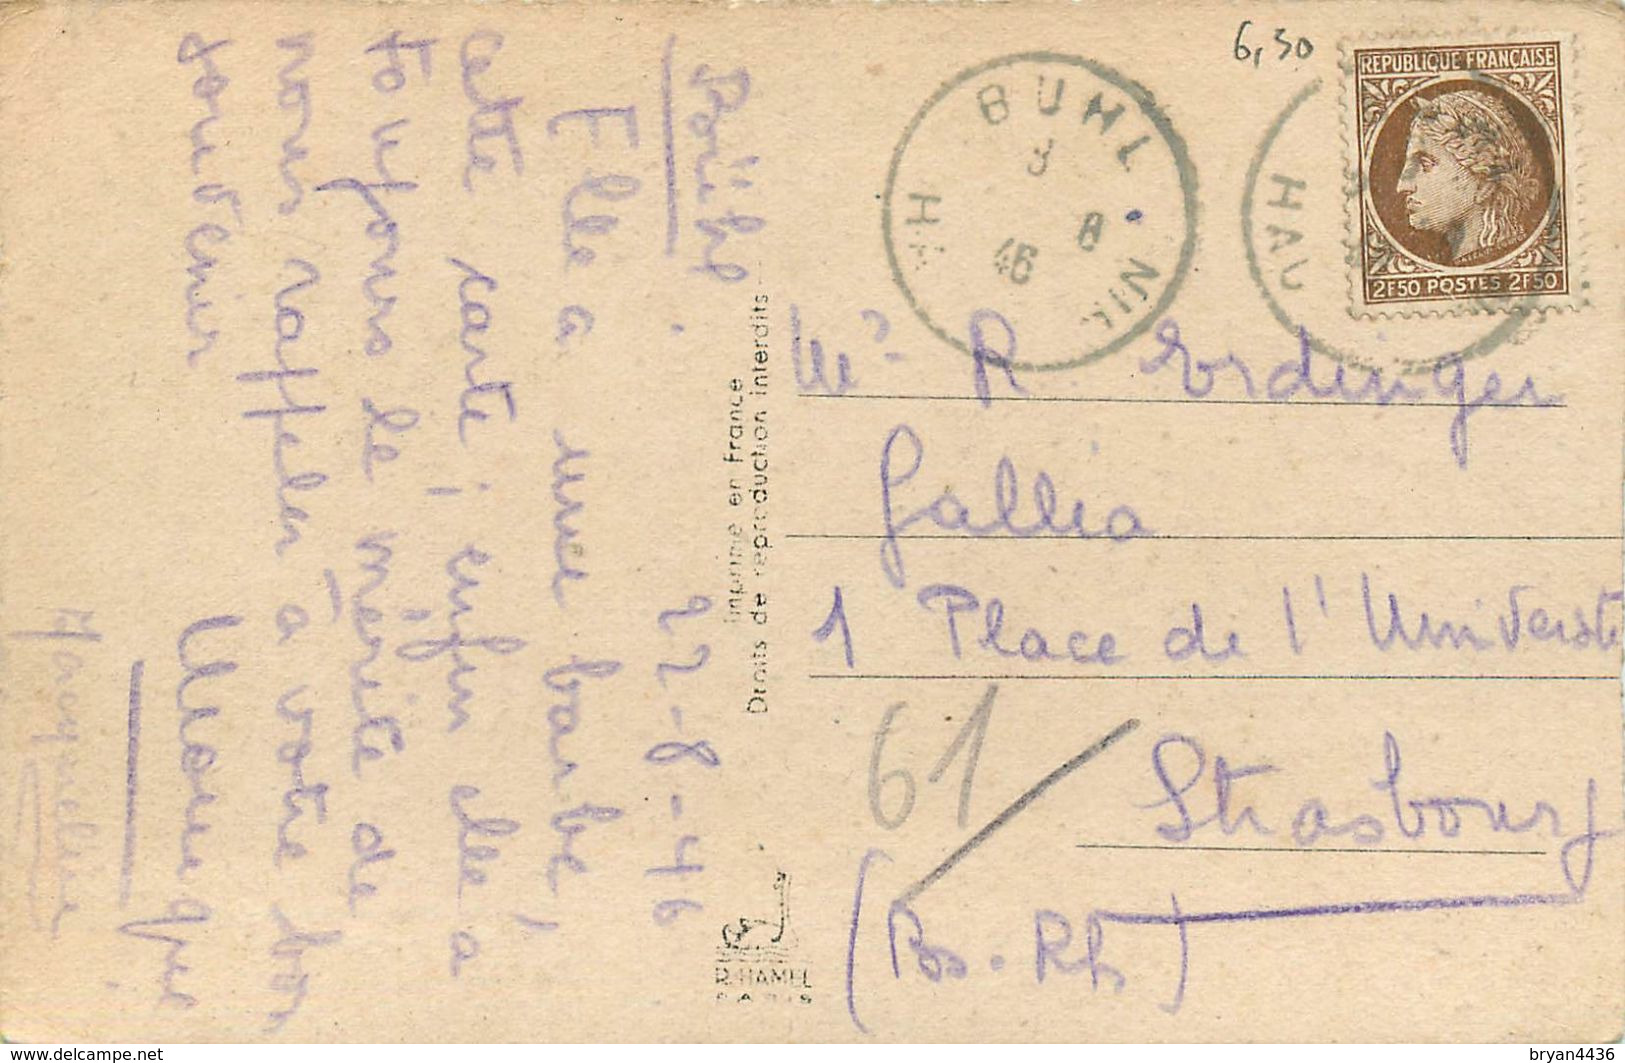 6,50
REPUBLIQUE FRANÇAISE
2F50 POSTES 2F50
BUHL
8
46
HAU
Bühl. 22-8-46
Elle a une barbe,
cette carte; enfin elle a
toujours le mérite de
nous rappeler à votre bon
souvenir
Monique
Imprimé en France
Droits de reproduction interdits
R. HAMEL
PARIS
R. Erdinger
Gallia
1 Place de l'Université
61
Strasbourg
(Bs. Rh)
delcampe.net
bryan4436